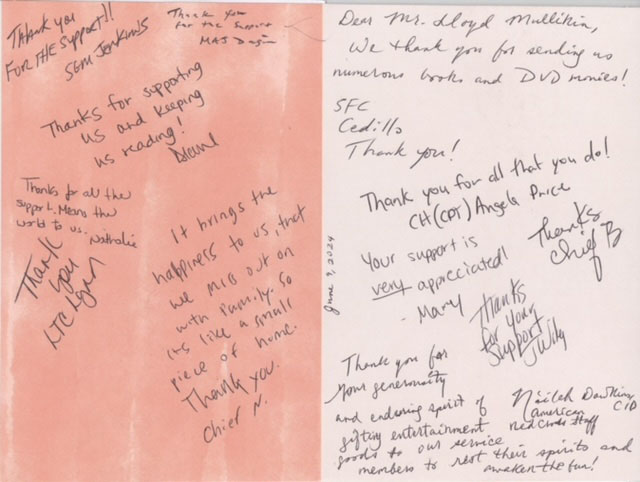 Thank you
FOR THE SUPPORT!!
SGM JENKINS
Thank You
for the Support
MAJ
Thanks for supporting
us and keeping
us reading!
Diane
Thanks for all the
support. Means the
world to us. Nathalie
Thank
you
LTC
It brings the
happiness to us, that
we miss out on
with family. So
its like a small
piece of home.
Thank you.
Chief N.
Dear Mr. Lloyd Mullikin,
We thank you for sending us
numerous books and DVD movies!
SFC
Cedillo
Thank you!
Thank you for all that you do!
CH(CPT) Angela Price
Thanks
Chief B
Your support is
very appreciated!
- Mary
June 9, 2024
Thanks
for your
Support
Thank you for
your generousity
and enduring spirit of
gifting entertainment
goods to our service
members to rest their spirits and
awaken the fun!
Naileh
American
Red Cross Staff